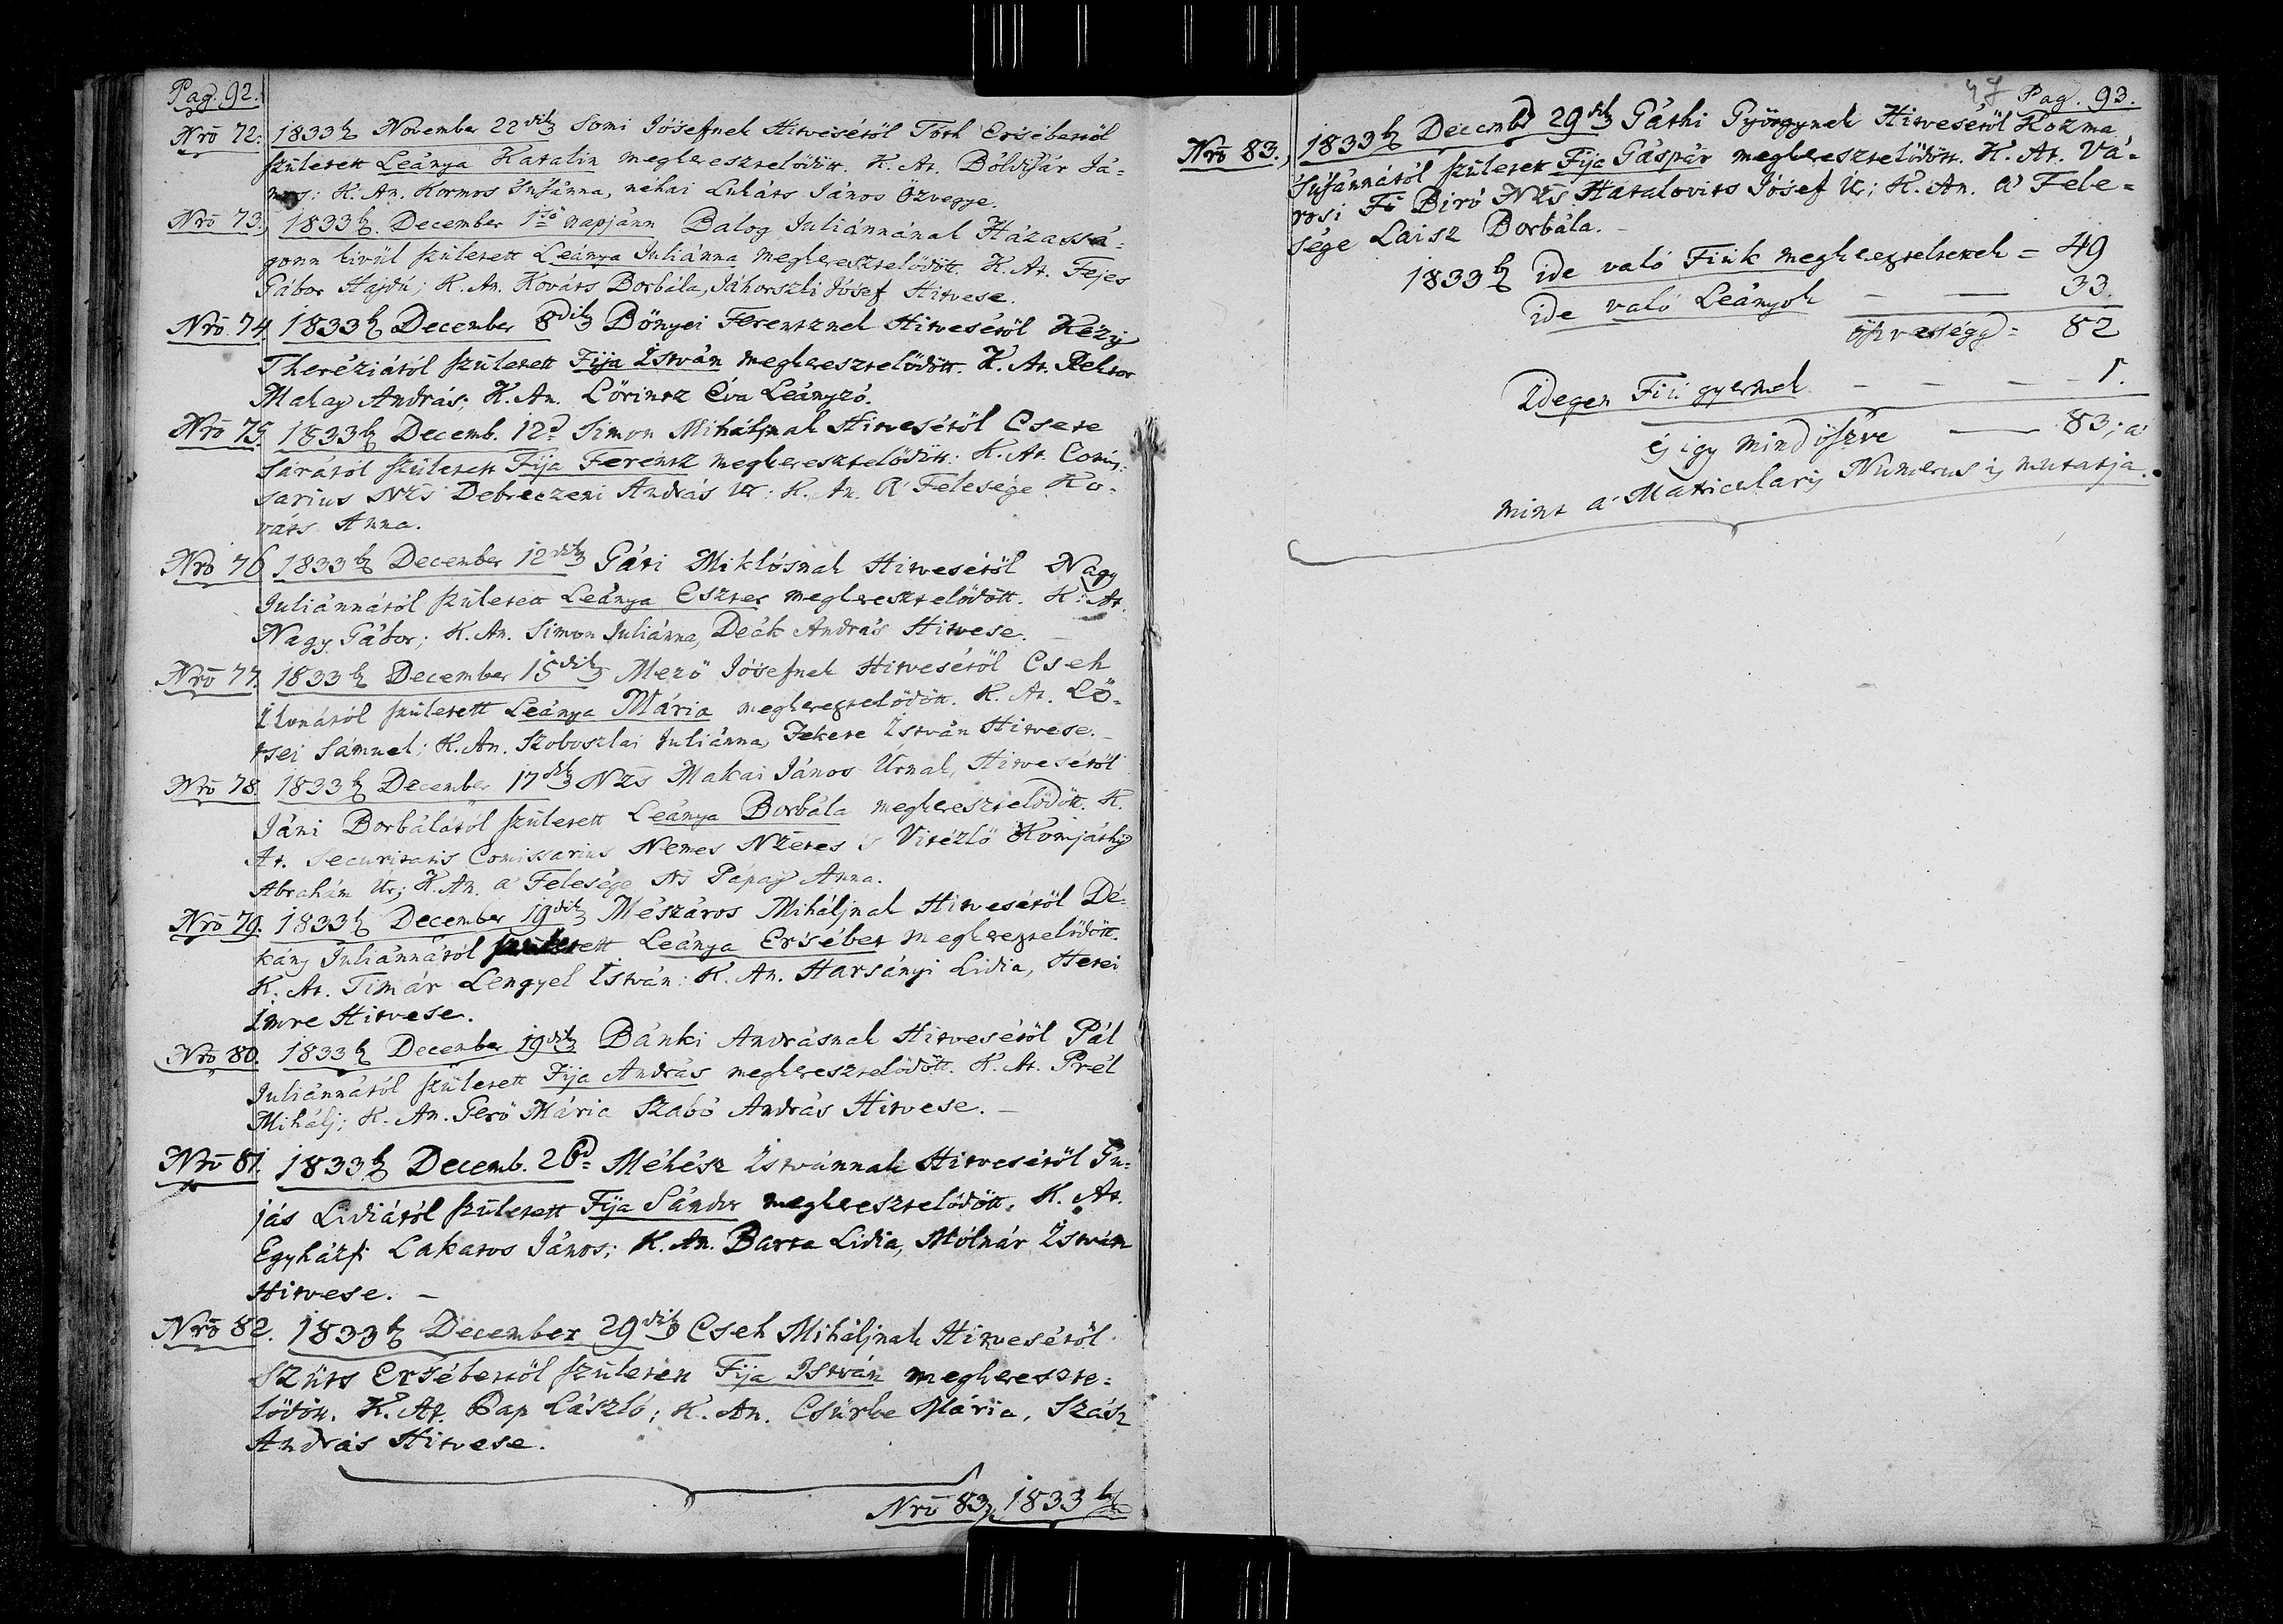 Pag. 92.
Nrō 72. 1833b. November 22dik Somi Jósefnek Hitvesétöl Tóth Ersébettöl
született Leánya Katalin megkeresztelödött. K. At. Bóldisár Já-
nos; K. An. Kormos Susánna, néhai Lukáts János Özvegye.
Nrō 73. 1833b. December 1ső napjánn Balog Juliánnának Házassá-
gonn kivül született Leánya Juliánna megkeresztelödött. K. At. Fejes
Gábor Hajdu; K. An. Kováts Borbála, Jáhorszki Jósef Hitvese.
Nrō 74. 1833b December 8dik Bönyei Ferentznek Hitvesétöl Kézy
Theréziától született Fija István megkeresztelödött. K. At. Rektor
Makay András; K. An. Lörintz Éva Leányzó.
Nrō 75. 1833b Decemb. 12d Simon Mihálynak Hitvesétöl Csete
Sárától született Fija Ferentz megkeresztelödött: K. At. Comis-
sarius Nzs Debreczeni András Ur: K. An. A' Felesége Ko-
váts Anna.
Nrō 76 1833b December 12dik Gáti Miklósnak Hitvesétöl Nagy
Juliánnától született Leánya Eszter megkeresztelödött. K. At.
Nagy Gábor; K. An. Simon Juliánna, Deák András Hitvese. –
Nrō 77. 1833b December 15dik Mezö Jósefnek Hitvesétöl Cseh
Ilonától született Leánya Mária megkeresztelödött. K. At. Lö-
tsei Sámuel; K. An. Szoboszlai Juliánna, Fekete István Hitvese. –
Nrō 78. 1833b December 17dik Nzs Makai János Urnak, Hitvesétöl
Jáni Borbálától született Leánya Borbála megkeresztelödött. K.
At. Securitatis Comissarius Nemes Nzetes és Vitézlö Komjáthy
Abrahám Ur; K. An. a' Felesége Ns Pápay Anna.
Nrō 79. 1833b December 19dik Mészáros Mihálynak Hitvesétöl Dé-
kány Juliánnától született Leánya Ersébet megkeresztelödött.
K. At. Timár Lengyel István: K. An. Harsányi Lidia, Hetei
Imre Hitvese.
Nrō 80. 1833b December 19dik Bánki Andrásnak Hitvesétöl Pál
Juliánnától született Fija András megkeresztelödött. K. At. Prél
Mihály; K. An. Gerö Mária Szabó András Hitvese. –
Nrō 81. 1833b Decemb. 26d Méhész Istvánnak Hitvesétöl Gu-
jás Lidiától született Fija Sándor megkeresztelödött. K. At.
Egyházfi Lakatos János; K. An. Barta Lidia, Mólnár István
Hitvese. –
Nrō 82. 1833b December 29dik Cseh Mihálynak Hitvesétöl
Szüts Ersébettöl született Fija István megkereszte-
lödött. K. At. Pap László; K. An. Csürke Mária, Szász
András Hitvese.
Nrō 83, 1833b
47 Pag. 93.
Nrō 83., 1833b Decembr 29dik Gáthi Györgynek Hitvesétöl Kozma
Susánnától született Fija Gáspár megkeresztelödött. K. At. Vá-
rosi Fö Biró Nzs Hatalovits Jósef Ur; K. An. a' Fele-
sége Laisz Borbála. –
1833b ide való Fiúk megkereszteltettek = 49
ide való Leányok — — 33.
öszvességgel = 82
Idegen Fiú gyermek – – – – 1.
és igy mind öszve — 83; a'
mint a' Matricularis Numerus is mutatja.